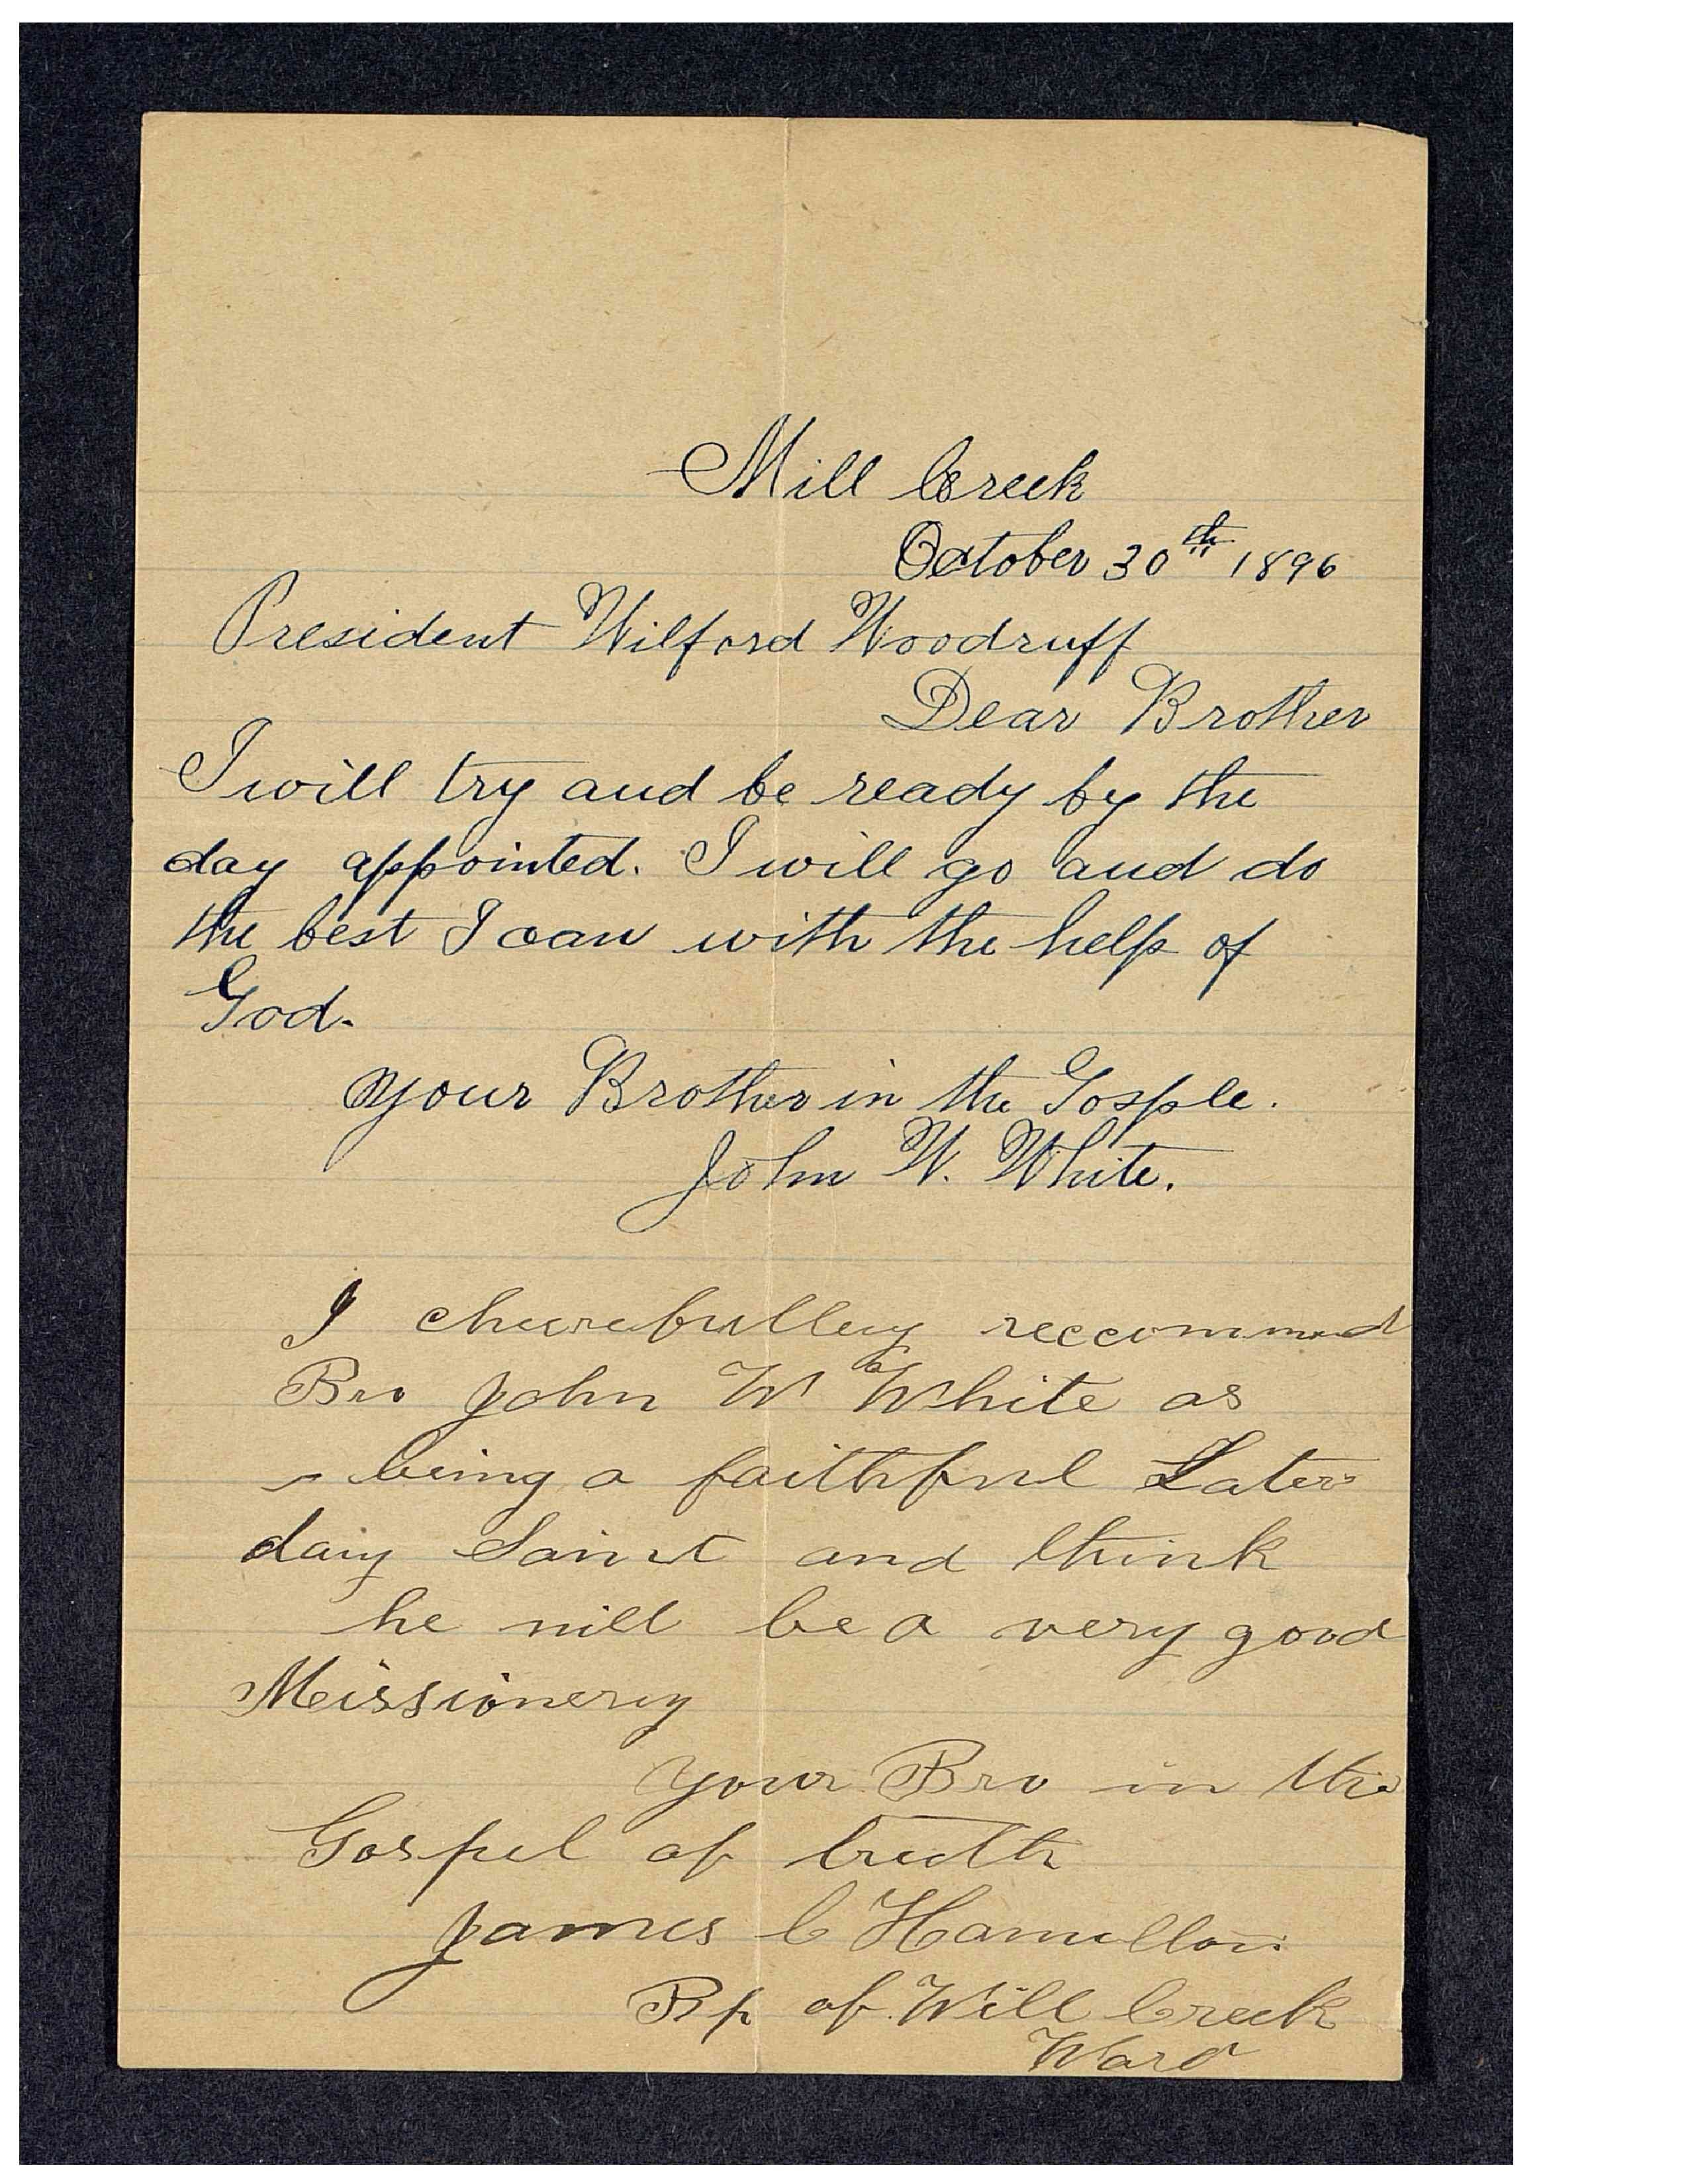 Mill Creek
October 30th 1896
President Wilford Woodruff
Dear Brother
I will try and be ready by the
day appointed. I will go and do
the best I can with the help of
God.
your Brother in the Gosple.
John W. White.
I cheerefulley reccommend
Bro John W White as
being a faithful Later
day Saint and think
he will be a very good
Missionery
your Bro in the
Gospel of truth
James C Hamilton
Bp of Mill Creek
Ward